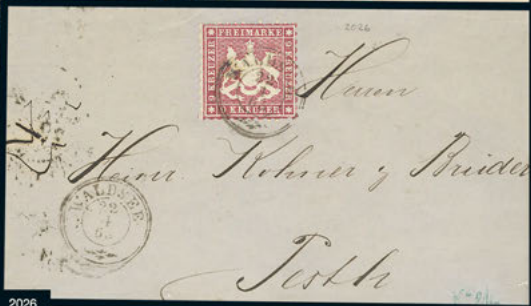 2026
FREIMARKE
9 KREUZER
9 KREUZER
9 KREUZER
Herrn
Herrn Kohner & Brüder
WALDSEE
22
Pesth
2026